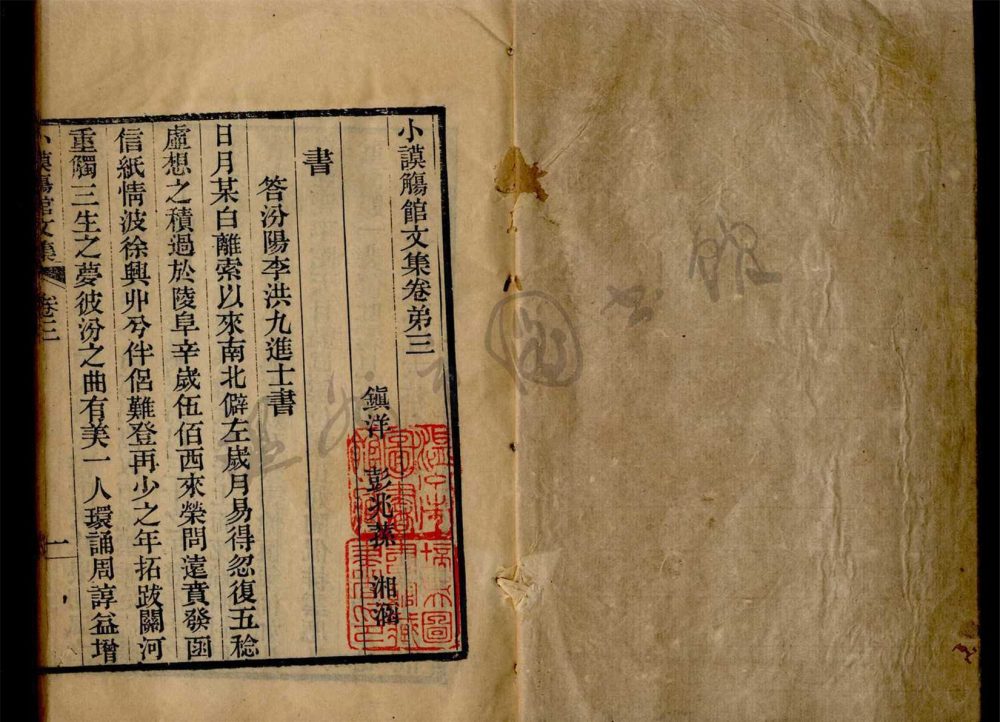 小謨觴館文集卷弟三
鎭洋 彭兆蓀 湘涵
書
答汾陽李洪九進士書
日月某白離索以來南北僻左歲月易得忽復五稔
虛想之積過於陵阜辛歲伍佰西來榮問遠賁發函
信紙情波徐興丱兮伴侶難登再少之年拓跋關河
重觸三生之夢彼汾之曲有美一人環誦周諄益增
小謨觴館文集 卷三 一